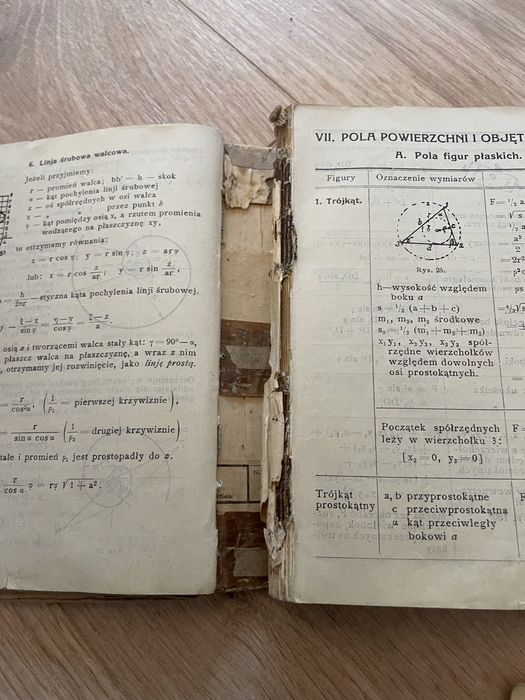 6. Linja śrubowa walcowa.
Jeżeli przyjmiemy:
r — promień walca; bb' = h — skok
α — kąt pochylenia linji śrubowej
z — oś spółrzędnych w osi walca
x — „ „ przez punkt b
φ — kąt pomiędzy osią x, a rzutem promienia
wodzącego na płaszczyznę xy,
to otrzymamy równania:
x = r cos φ; y = r sin φ; z = arφ
lub: x = r cos z/ar; y = r sin z/ar,
h/2πr — styczna kąta pochylenia linji śrubowej.
ξ—x/sin φ = η—y/cos φ = ζ—z/a
osią z i tworzącemi walca stały kąt: γ = 90°—α,
płaszcz walca na płaszczyznę, a wraz z nim
otrzymamy jej rozwinięcie, jako linję prostą.
r/cos² α, (1/ρ₁ = pierwszej krzywiznie),
r/sin α cos α (1/ρ₂ = drugiej krzywiznie)
stałe i promień ρ₁ jest prostopadły do z.
r/cos α φ = rφ √1 + a².
VII. POLA POWIERZCHNI I OBJĘT
A. Pola figur płaskich.
Figury
Oznaczenie wymiarów
1. Trójkąt.
Rys. 25.
h—wysokość względem
boku a
s = ¹/₂ (a + b + c)
m₁, m₂, m₃ środkowe
s₀ = ¹/₂ (m₁ + m₂ + m₃)
x₁y₁, x₂y₂, x₃y₃ spół-
rzędne wierzchołków
względem dowolnych
osi prostokątnych.
F = ¹/₂ a
= √s
a²
2
= 2r²
Początek spółrzędnych
leży w wierzchołku 3:
[x₃ = 0, y₃ = 0]
F =
Trójkąt
prostokątny
a, b przyprostokątne
c przeciwprostokątna
α kąt przeciwległy
bokowi a
F